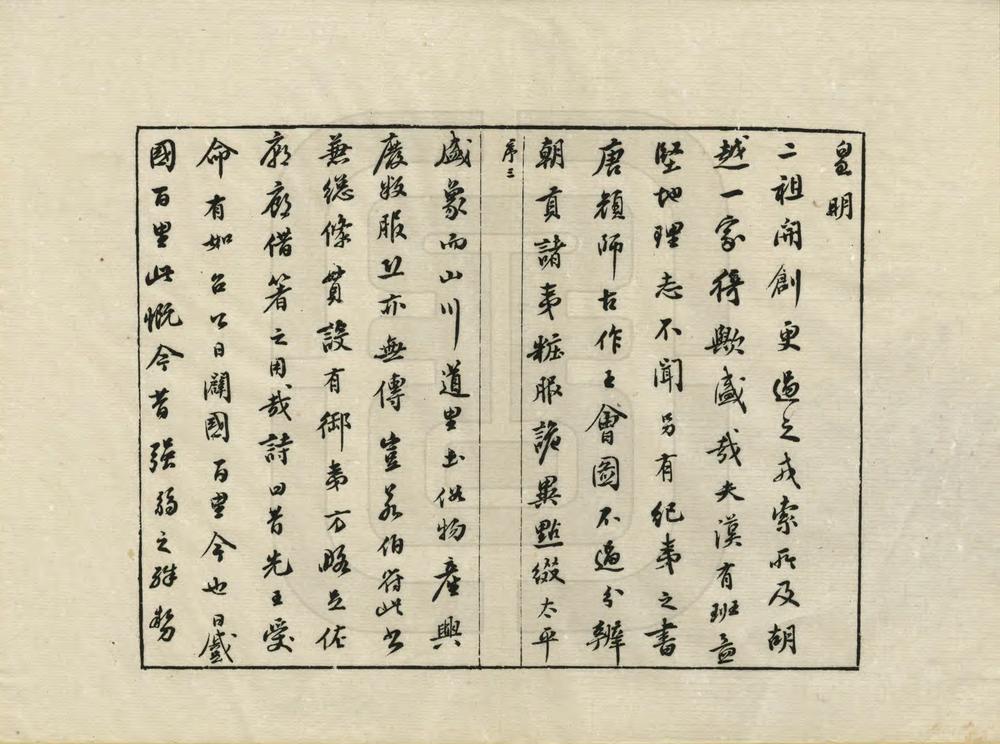 皇明
二祖開創更過之戎索所及胡
越一家猗歟盛哉夫漢有班孟
堅地理志不聞另有紀夷之書
唐顏師古作王會圖不過分辨
朝貢諸夷粧服詭異點綴太平
序三
盛象而山川道里土俗物產興
廢叛服且亦無傳豈若伯符此書
兼總條貫設有御夷方略足佐
廟廊借箸之用哉詩曰昔先王受
命有如召公日闢國百里今也日蹙
國百里此慨今昔強弱之殊勢